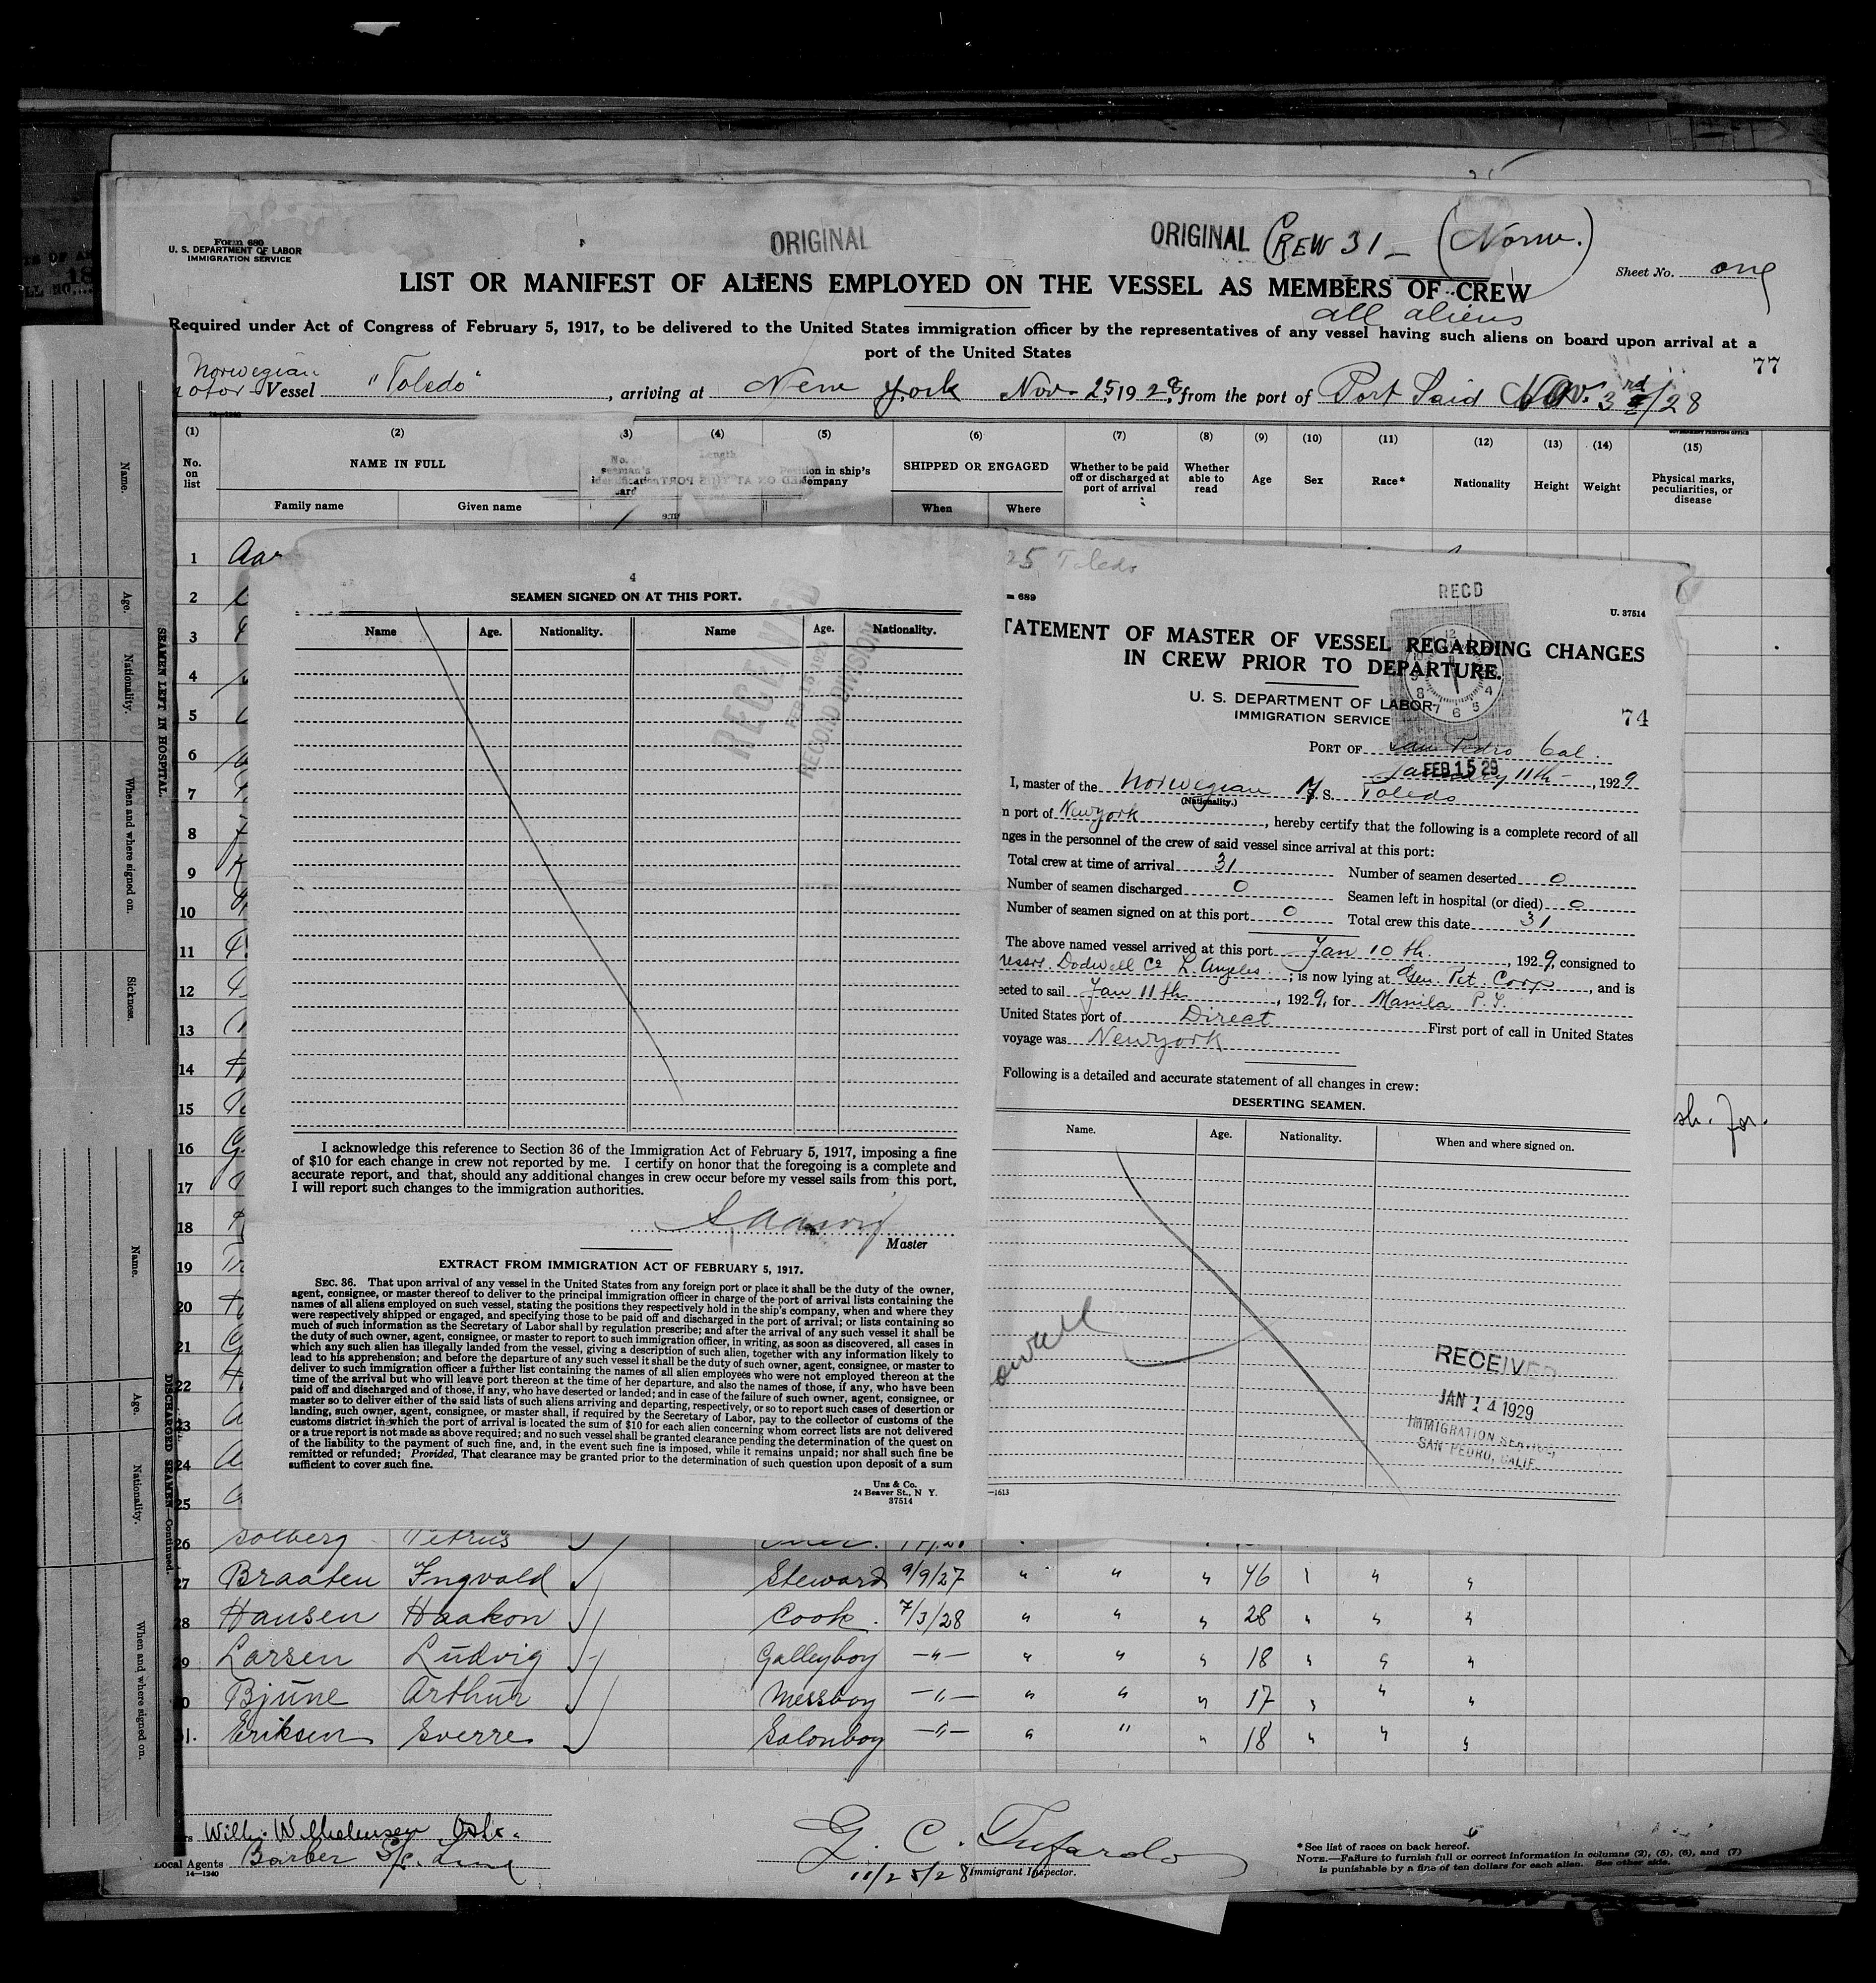 Form 680
U. S. DEPARTMENT OF LABOR
IMMIGRATION SERVICE
ORIGINAL
ORIGINAL CREW 31 - (Norw.)
Sheet No. one
LIST OR MANIFEST OF ALIENS EMPLOYED ON THE VESSEL AS MEMBERS OF CREW
all aliens
Required under Act of Congress of February 5, 1917, to be delivered to the United States immigration officer by the representatives of any vessel having such aliens on board upon arrival at a
port of the United States
77
Norwegian
Vessel "Toledo", arriving at New York Nov. 25, 1928, from the port of Port Said Nov. 3rd/28
14-1240
GOVERNMENT PRINTING OFFICE
(1) (2) (3) (4) (5) (6) (7) (8) (9) (10) (11) (12) (13) (14) (15)
No. on list
NAME IN FULL
Family name Given name
No. seaman's identification card
Length
Position in ship's company
SHIPPED OR ENGAGED
When Where
Whether to be paid off or discharged at port of arrival
Whether able to read
Age
Sex
Race*
Nationality
Height
Weight
Physical marks, peculiarities, or disease
1
2
3
4
5
6
7
8
9
10
11
12
13
14
15
16
17
18
19
20
21
22
23
24
25
26 Solberg Petrus
27 Braaten Ingvold Steward 9/9/27 " " " 46 " " "
28 Hansen Haakon Cook. 7/3/28 " " " 28 " " "
29 Larsen Ludvig Galleyboy -"- " " " 18 " " "
30 Bjune Arthur Messboy -"- " " " 17 " " "
31. Eriksen Sverre Salonboy -"- " " " 18 " " "
4
SEAMEN SIGNED ON AT THIS PORT.
Name Age. Nationality. Name Age. Nationality.
RECEIVED
RECORD DIVISION
I acknowledge this reference to Section 36 of the Immigration Act of February 5, 1917, imposing a fine
of $10 for each change in crew not reported by me. I certify on honor that the foregoing is a complete and
accurate report, and that, should any additional changes in crew occur before my vessel sails from this port,
I will report such changes to the immigration authorities.
Master
EXTRACT FROM IMMIGRATION ACT OF FEBRUARY 5, 1917.
SEC. 36. That upon arrival of any vessel in the United States from any foreign port or place it shall be the duty of the owner,
agent, consignee, or master thereof to deliver to the principal immigration officer in charge of the port of arrival lists containing the
names of all aliens employed on such vessel, stating the positions they respectively hold in the ship's company, when and where they
were respectively shipped or engaged, and specifying those to be paid off and discharged in the port of arrival; or lists containing so
much of such information as the Secretary of Labor shall by regulation prescribe; and after the arrival of any such vessel it shall be
the duty of such owner, agent, consignee, or master to report to such immigration officer, in writing, as soon as discovered, all cases in
which any such alien has illegally landed from the vessel, giving a description of such alien, together with any information likely to
lead to his apprehension; and before the departure of any such vessel it shall be the duty of such owner, agent, consignee, or master to
deliver to such immigration officer a further list containing the names of all alien employees who were not employed thereon at the
time of the arrival but who will leave port thereon at the time of her departure, and also the names of those, if any, who have been
paid off and discharged and of those, if any, who have deserted or landed; and in case of the failure of such owner, agent, consignee, or
master so to deliver either of the said lists of such aliens arriving and departing, respectively, or so to report such cases of desertion or
landing, such owner, agent, consignee, or master shall, if required by the Secretary of Labor, pay to the collector of customs of the
customs district in which the port of arrival is located the sum of $10 for each alien concerning whom correct lists are not delivered
or a true report is not made as above required; and no such vessel shall be granted clearance pending the determination of the quest on
of the liability to the payment of such fine, and, in the event such fine is imposed, while it remains unpaid; nor shall such fine be
remitted or refunded; Provided, That clearance may be granted prior to the determination of such question upon deposit of a sum
sufficient to cover such fine.
Unz & Co.
24 Beaver St., N Y.
37514
25 Toledo
689
RECD
U. 37514
TATEMENT OF MASTER OF VESSEL REGARDING CHANGES
IN CREW PRIOR TO DEPARTURE.
U. S. DEPARTMENT OF LABOR
IMMIGRATION SERVICE
74
PORT OF San Pedro Cal.
FEB 15 29
January 11th -, 1929
I, master of the Norwegian M. S. Toledo
(Nationality.)
port of Newyork, hereby certify that the following is a complete record of all
nges in the personnel of the crew of said vessel since arrival at this port:
Total crew at time of arrival 31 Number of seamen deserted 0
Number of seamen discharged 0 Seamen left in hospital (or died) 0
Number of seamen signed on at this port 0 Total crew this date 31
The above named vessel arrived at this port Jan 10th., 1929, consigned to
Dodwell Co L. Angeles; is now lying at Gen. Pet. Corp, and is
ected to sail Jan 11th, 1929, for Manila P. I.
United States port of Direct First port of call in United States
voyage was Newyork
Following is a detailed and accurate statement of all changes in crew:
DESERTING SEAMEN.
Name. Age. Nationality. When and where signed on.
RECEIVED
JAN 14 1929
IMMIGRATION SERVICE,
SAN PEDRO, CALIF.
-1613
SEAMEN LEFT IN HOSPITAL.
Name. Age. Nationality. When and where signed on. Sickness.
DISCHARGED SEAMEN—Continued.
Name. Age. Nationality. When and where signed on.
Wilh. Wilhelmsen Oslo.
Local Agents Barber S/S. Line
14-1240
11/25/28 Immigrant Inspector.
*See list of races on back hereof.
NOTE.—Failure to furnish full or correct information in columns (2), (5), (6), and (7)
is punishable by a fine of ten dollars for each alien. See other side.